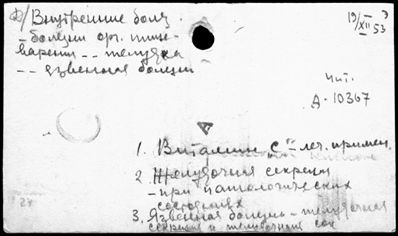 Ф/ Внутренние бол.
- болезни орг. пище-
варения -- желудка
-- язвенная болезни
19/XII 53
Чит.
А-10367
1. Витамин "С" - леч. примен.
2 Желудочная секреция
- при патологических
состояниях
3. Язвенная болезнь - желудочная
секреция и желудочный сок